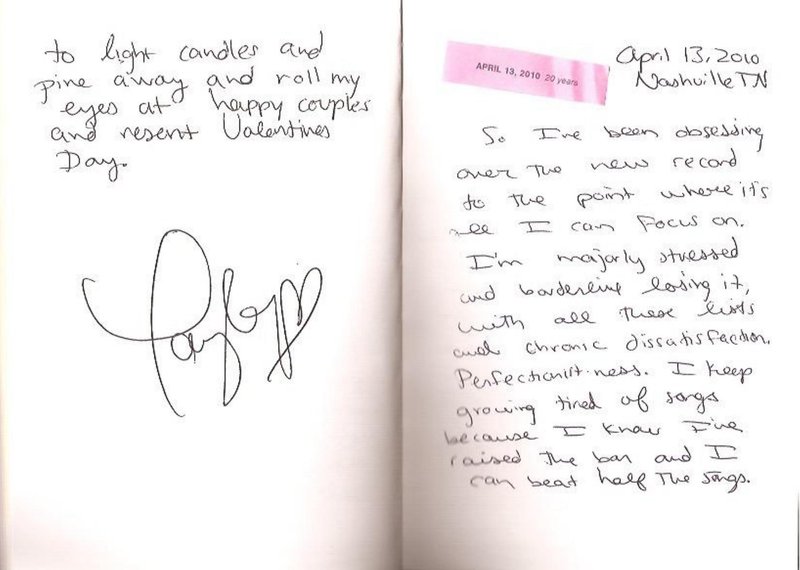 to light candles and
pine away and roll my
eyes at happy couples
and resent Valentines
Day.
Taylor
APRIL 13, 2010 20 years
April 13, 2010
Nashville TN
So I've been obsessing
over the new record
to the point where it's
all I can focus on.
I'm majorly stressed
and borderline losing it,
with all these lists
and chronic dissatisfaction.
Perfectionist-ness. I keep
growing tired of songs
because I know I've
raised the bar and I
can beat half the songs.